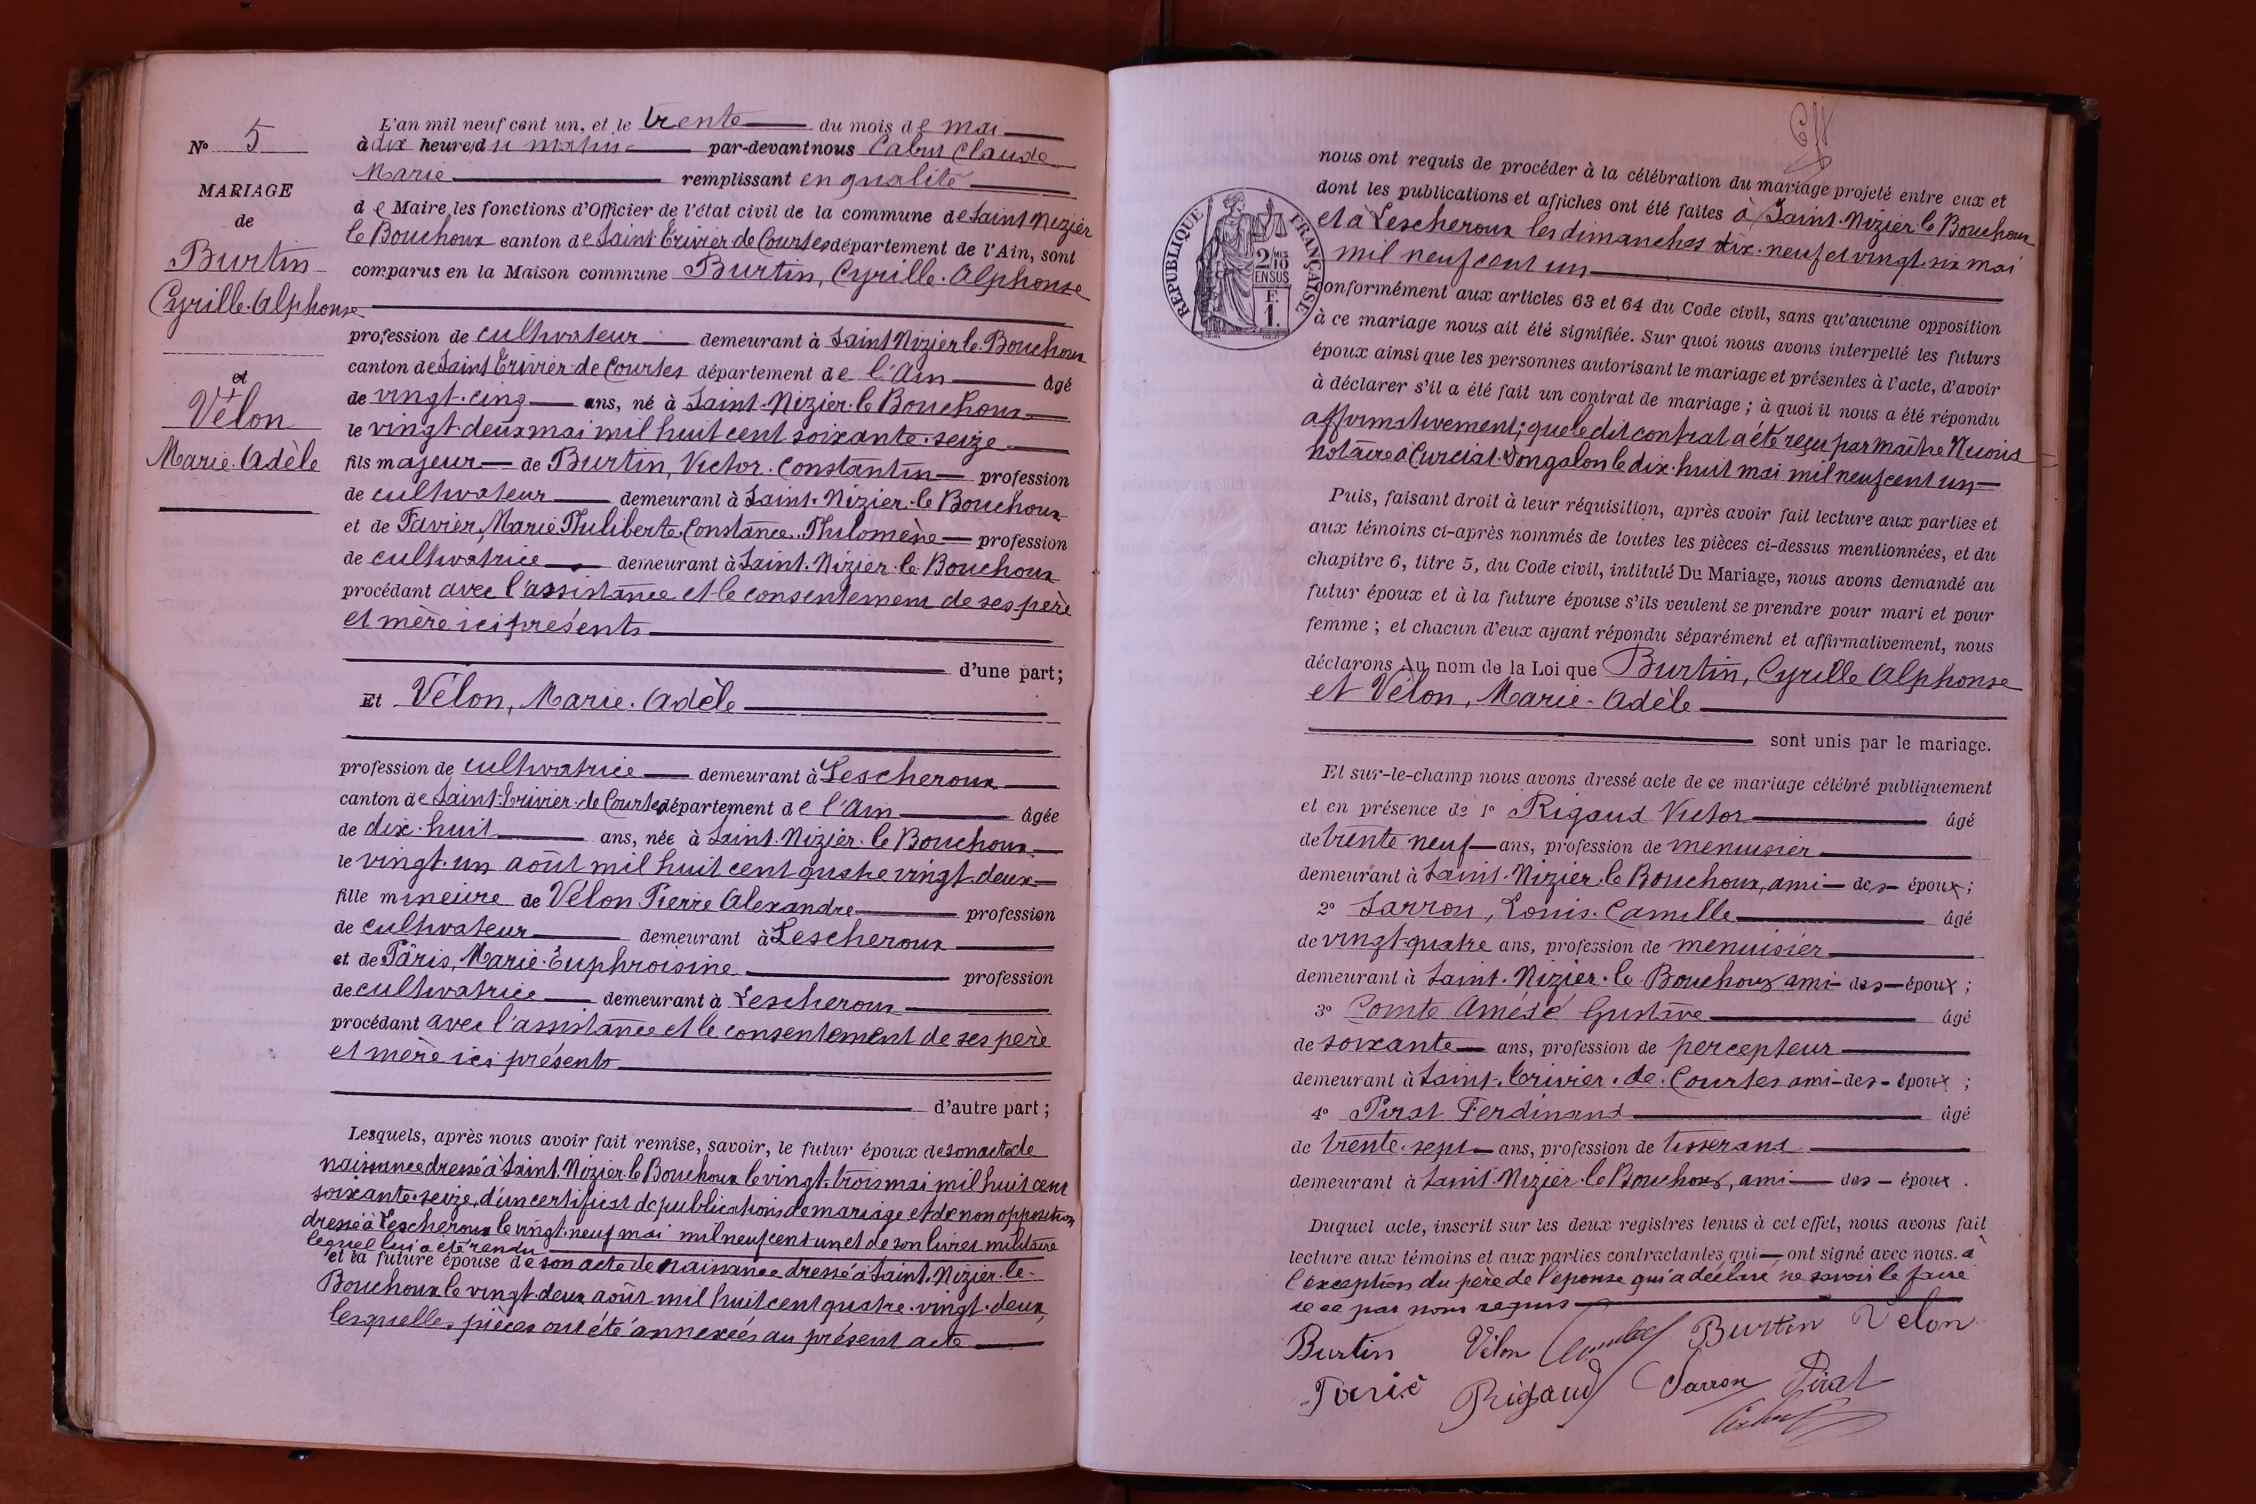 N° 5
MARIAGE
de
Burtin
Cyrille Alphonse
et
Vélon
Marie Adèle
L'an mil neuf cent un, et le trente du mois de mai
à dix heures du matin par-devant nous Claude
Marie remplissant en qualité
de Maire les fonctions d'Officier de l'état civil de la commune de Saint Nizier
le Bouchoux canton de Saint Trivier de Courtes département de l'Ain, sont
comparus en la Maison commune Burtin, Cyrille Alphonse
profession de cultivateur demeurant à Saint Nizier le Bouchoux
canton de Saint Trivier de Courtes département de l'Ain âgé
de vingt-cinq ans, né à Saint-Nizier-le Bouchoux
le vingt-deux mai mil huit cent soixante-seize
fils majeur de Burtin, Victor Constantin profession
de cultivateur demeurant à Saint-Nizier-le Bouchoux
et de Favier, Marie Philiberte Constance Philomène profession
de cultivatrice demeurant à Saint-Nizier-le Bouchoux
procédant avec l'assistance et le consentement de ses père
et mère ici présents
d'une part;
Et Vélon, Marie Adèle
profession de cultivatrice demeurant à Lescheroux
canton de Saint-Trivier-de Courtes département de l'Ain âgée
de dix-huit ans, née à Saint-Nizier-le Bouchoux
le vingt-un août mil huit cent quatre vingt-deux
fille mineure de Vélon Pierre Alexandre profession
de cultivateur demeurant à Lescheroux
et de Pâris, Marie-Euphroisine profession
de cultivatrice demeurant à Lescheroux
procédant avec l'assistance et le consentement de ses père
et mère ici présents
d'autre part;
Lesquels, après nous avoir fait remise, savoir, le futur époux de son acte de
naissance dressé à Saint-Nizier-le Bouchoux le vingt-trois mai mil huit cent
soixante-seize, d'un certificat de publications de mariage et de non opposition
dressé à Lescheroux le vingt-neuf mai mil neuf cent un et de son livret militaire
lequel lui a été rendu
et la future épouse de son acte de naissance dressé à Saint-Nizier-le-
Bouchoux le vingt-deux août mil huit cent quatre-vingt-deux,
lesquelles pièces ont été annexées au présent acte
nous ont requis de procéder à la célébration du mariage projeté entre eux et
dont les publications et affiches ont été faites à Saint-Nizier le Bouchoux
et à Lescheroux les dimanches dix-neuf et vingt-six mai
mil neuf cent un
conformément aux articles 63 et 64 du Code civil, sans qu'aucune opposition
à ce mariage nous ait été signifiée. Sur quoi nous avons interpellé les futurs
époux ainsi que les personnes autorisant le mariage et présentes à l'acte, d'avoir
à déclarer s'il a été fait un contrat de mariage; à quoi il nous a été répondu
affirmativement; que le dit contrat a été reçu par Maître
notaire à Curciat-Dongalon le dix-huit mai mil neuf cent un
Puis, faisant droit à leur réquisition, après avoir fait lecture aux parties et
aux témoins ci-après nommés de toutes les pièces ci-dessus mentionnées, et du
chapitre 6, titre 5, du Code civil, intitulé Du Mariage, nous avons demandé au
futur époux et à la future épouse s'ils veulent se prendre pour mari et pour
femme; et chacun d'eux ayant répondu séparément et affirmativement, nous
déclarons Au nom de la Loi que Burtin, Cyrille Alphonse
et Vélon, Marie-Adèle
sont unis par le mariage.
Et sur-le-champ nous avons dressé acte de ce mariage célébré publiquement
et en présence de 1° Rigaud Victor âgé
de trente neuf ans, profession de menuisier
demeurant à Saint-Nizier-le Bouchoux, ami des époux;
2° Sarron, Louis Camille âgé
de vingt-quatre ans, profession de menuisier
demeurant à Saint-Nizier-le Bouchoux ami des époux;
3° Comte Amédé Gustave âgé
de soixante ans, profession de percepteur
demeurant à Saint-Trivier-de-Courtes ami des époux;
4° Pirat Ferdinand âgé
de trente-sept ans, profession de tisserand
demeurant à Saint-Nizier-le Bouchoux, ami des époux.
Duquel acte, inscrit sur les deux registres tenus à cet effet, nous avons fait
lecture aux témoins et aux parties contractantes qui ont signé avec nous. à
l'exception du père de l'épouse qui a déclaré ne savoir le faire
de ce par nous requis
Burtin Vélon Burtin Velon
Rigaud Sarron Pirat
REPUBLIQUE FRANÇAISE
2/10
EN SUS
F.
1.